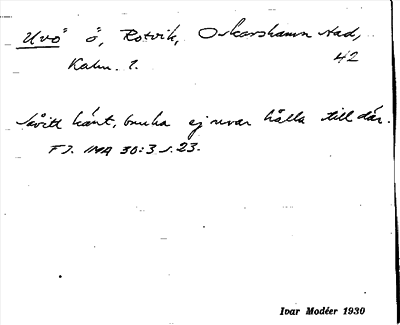 Uvö ö, Rotvik, Oskarshamn stad,
Kalm. l. 42
såvitt känt, bruka ej uvar hålla till där.
F J. IMA 30:3 s. 23.
Ivar Modéer 1930